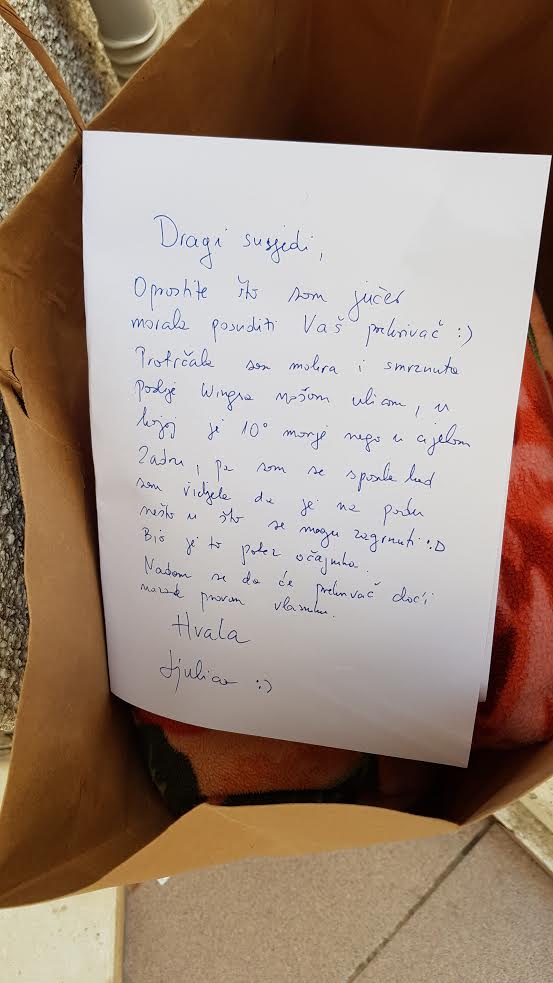 Dragi susjedi,
Oprostite što sam jučer
morala posuditi Vaš prekrivač :)
Protrčala sam mokra i smrznuta
poslije Wingsa našom ulicom, u
kojoj je 10° manje nego u cijelom
Zadru, pa sam se spasila kad
sam vidjela da je na podu
nešto u što se mogu zagrnuti :D
Bio je to potez očajnika.
Nadam se da će prekrivač doći
nazad pravom vlasniku.
Hvala
:)